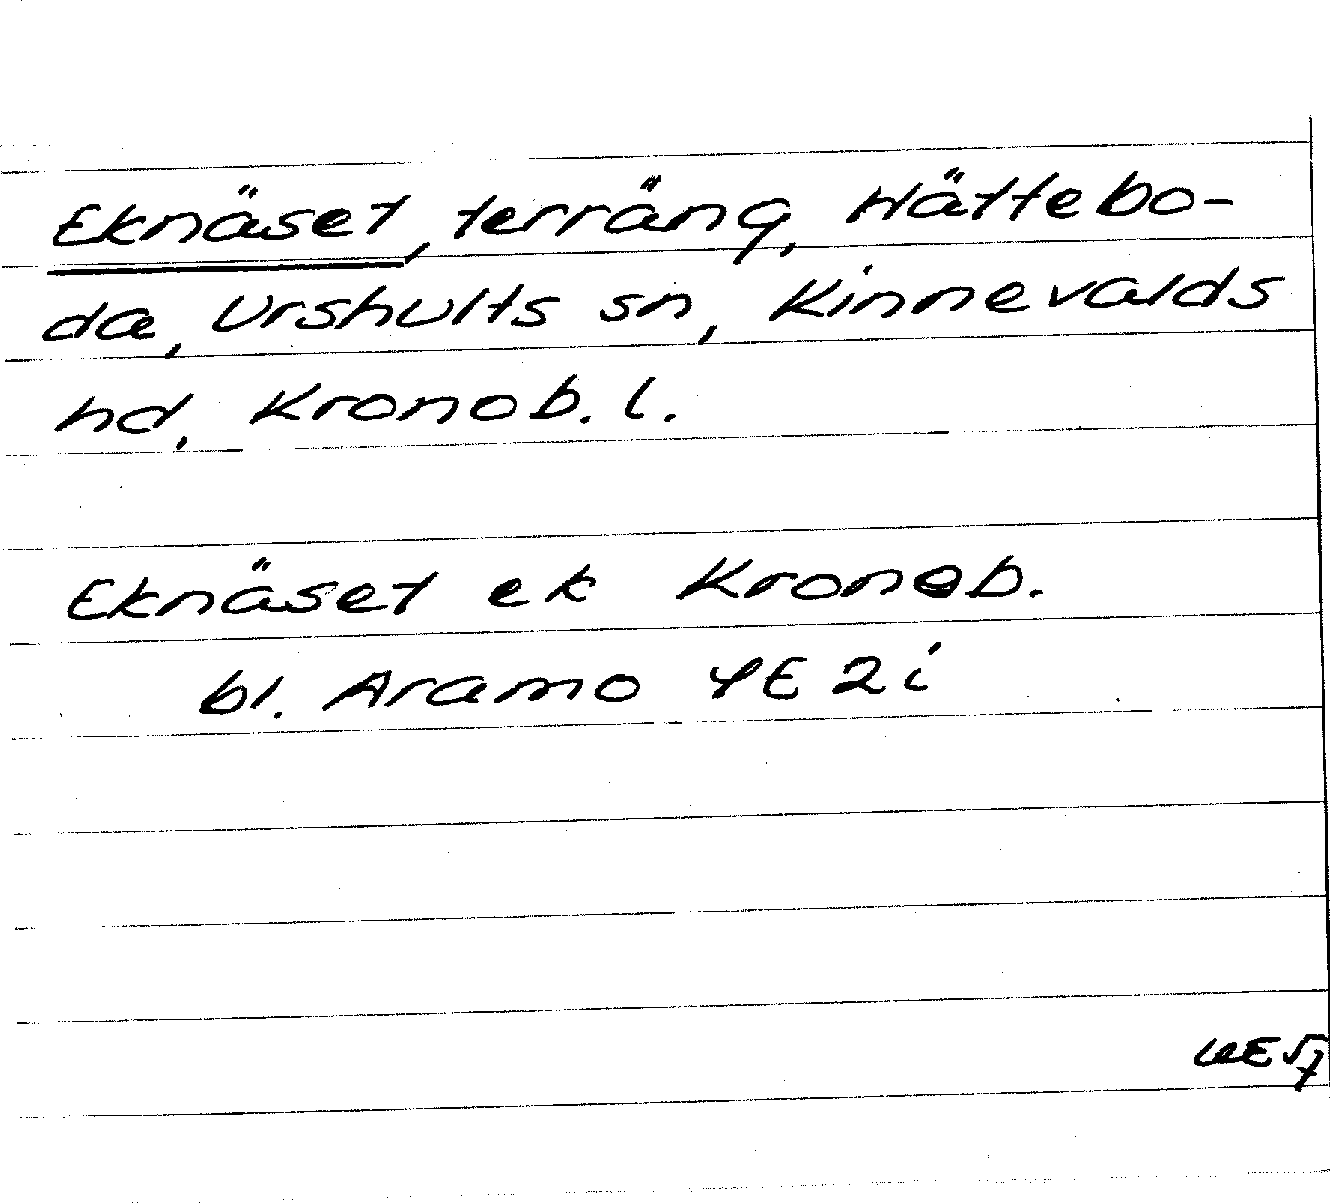 Eknäset, terräng, Hättebo-
da, Urshults sn, Kinnevalds
hd, Kronob. l.
Eknäset ek Kronob.
bl. Aramo 4E 2i